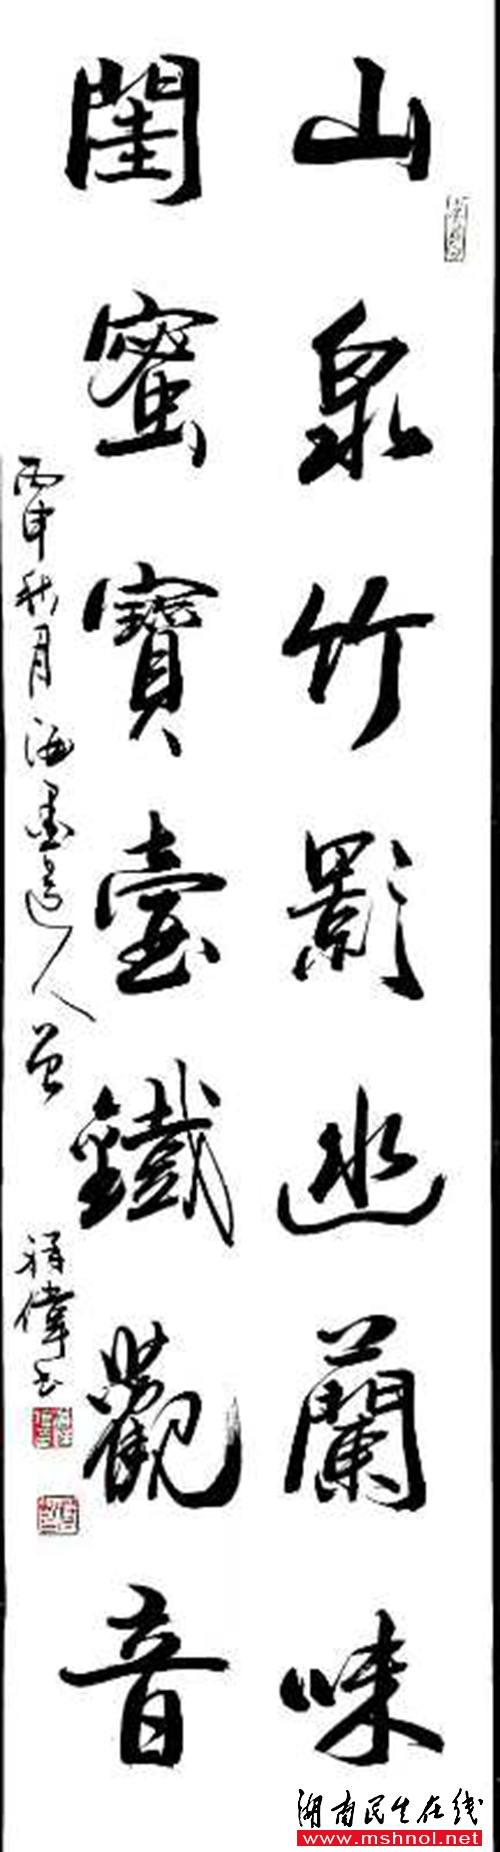 山泉竹影幽蘭味
閨蜜寶臺鐵觀音
丙申秋月墨道人曾祥偉书
湖南民生在线
www.mshnol.net